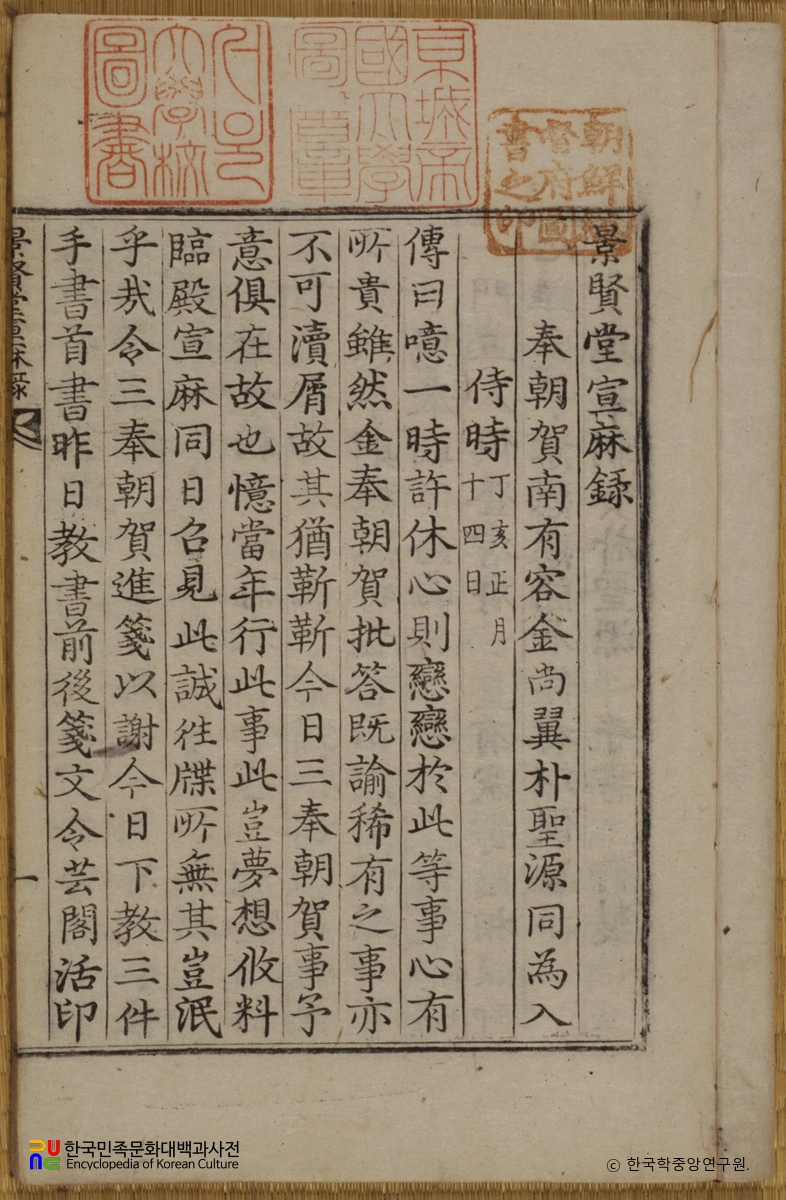 朝鮮總
督府圖
書之印
京城帝
國大學
圖書章
서울
大學校
圖書
景賢堂宣麻錄
奉朝賀南有容金尚翼朴聖源同為入
侍時丁亥正月十四日
傳曰噫一時許休心則戀戀於此等事心有
所貴雖然金奉朝賀批答既諭稀有之事亦
不可瀆屑故其猶靳靳今日三奉朝賀事予
意俱在故也憶當年行此事此豈夢想攸料
臨殿宣麻同日召見此誠徃牒所無其豈泯
乎㢤令三奉朝賀進箋以謝今日下教三件
手書首書昨日教書前後箋文令芸閣活印
景賢堂宣麻錄
一
한국민족문화대백과사전
Encyclopedia of Korean Culture
ⓒ 한국학중앙연구원.